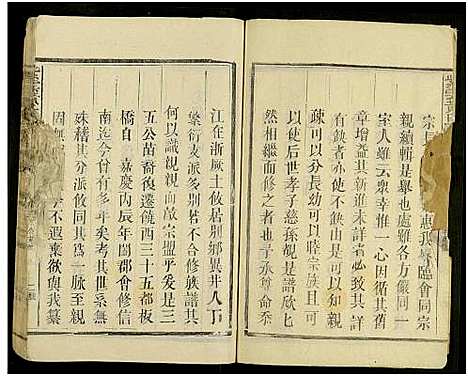 宗
惠我
臨會同宗
親續輯是舉也處難各方儼同一
室人雖云衆幸惟一心因循其舊
章增益其新本諸省者必致其詳
有缺者亦使不缺由是可以知親
疎可以分長幼可以睦宗族且可
以啓後世孝子慈孫覩是譜欣匕
然相繼而修之者也予承尊命忝
江在浙厥土攸居別鄉異井人丁
繁衍支派多別若不合修族譜其
何以識親親而敵宗盟乎爰是三
五公苗裔復遷饒西三十五都板
橋自 嘉慶丙辰年闔郡會修
南迄今曾有多年矣考其世系無
殊稽其分派攸同其
固無
今不遐棄欲與我纂